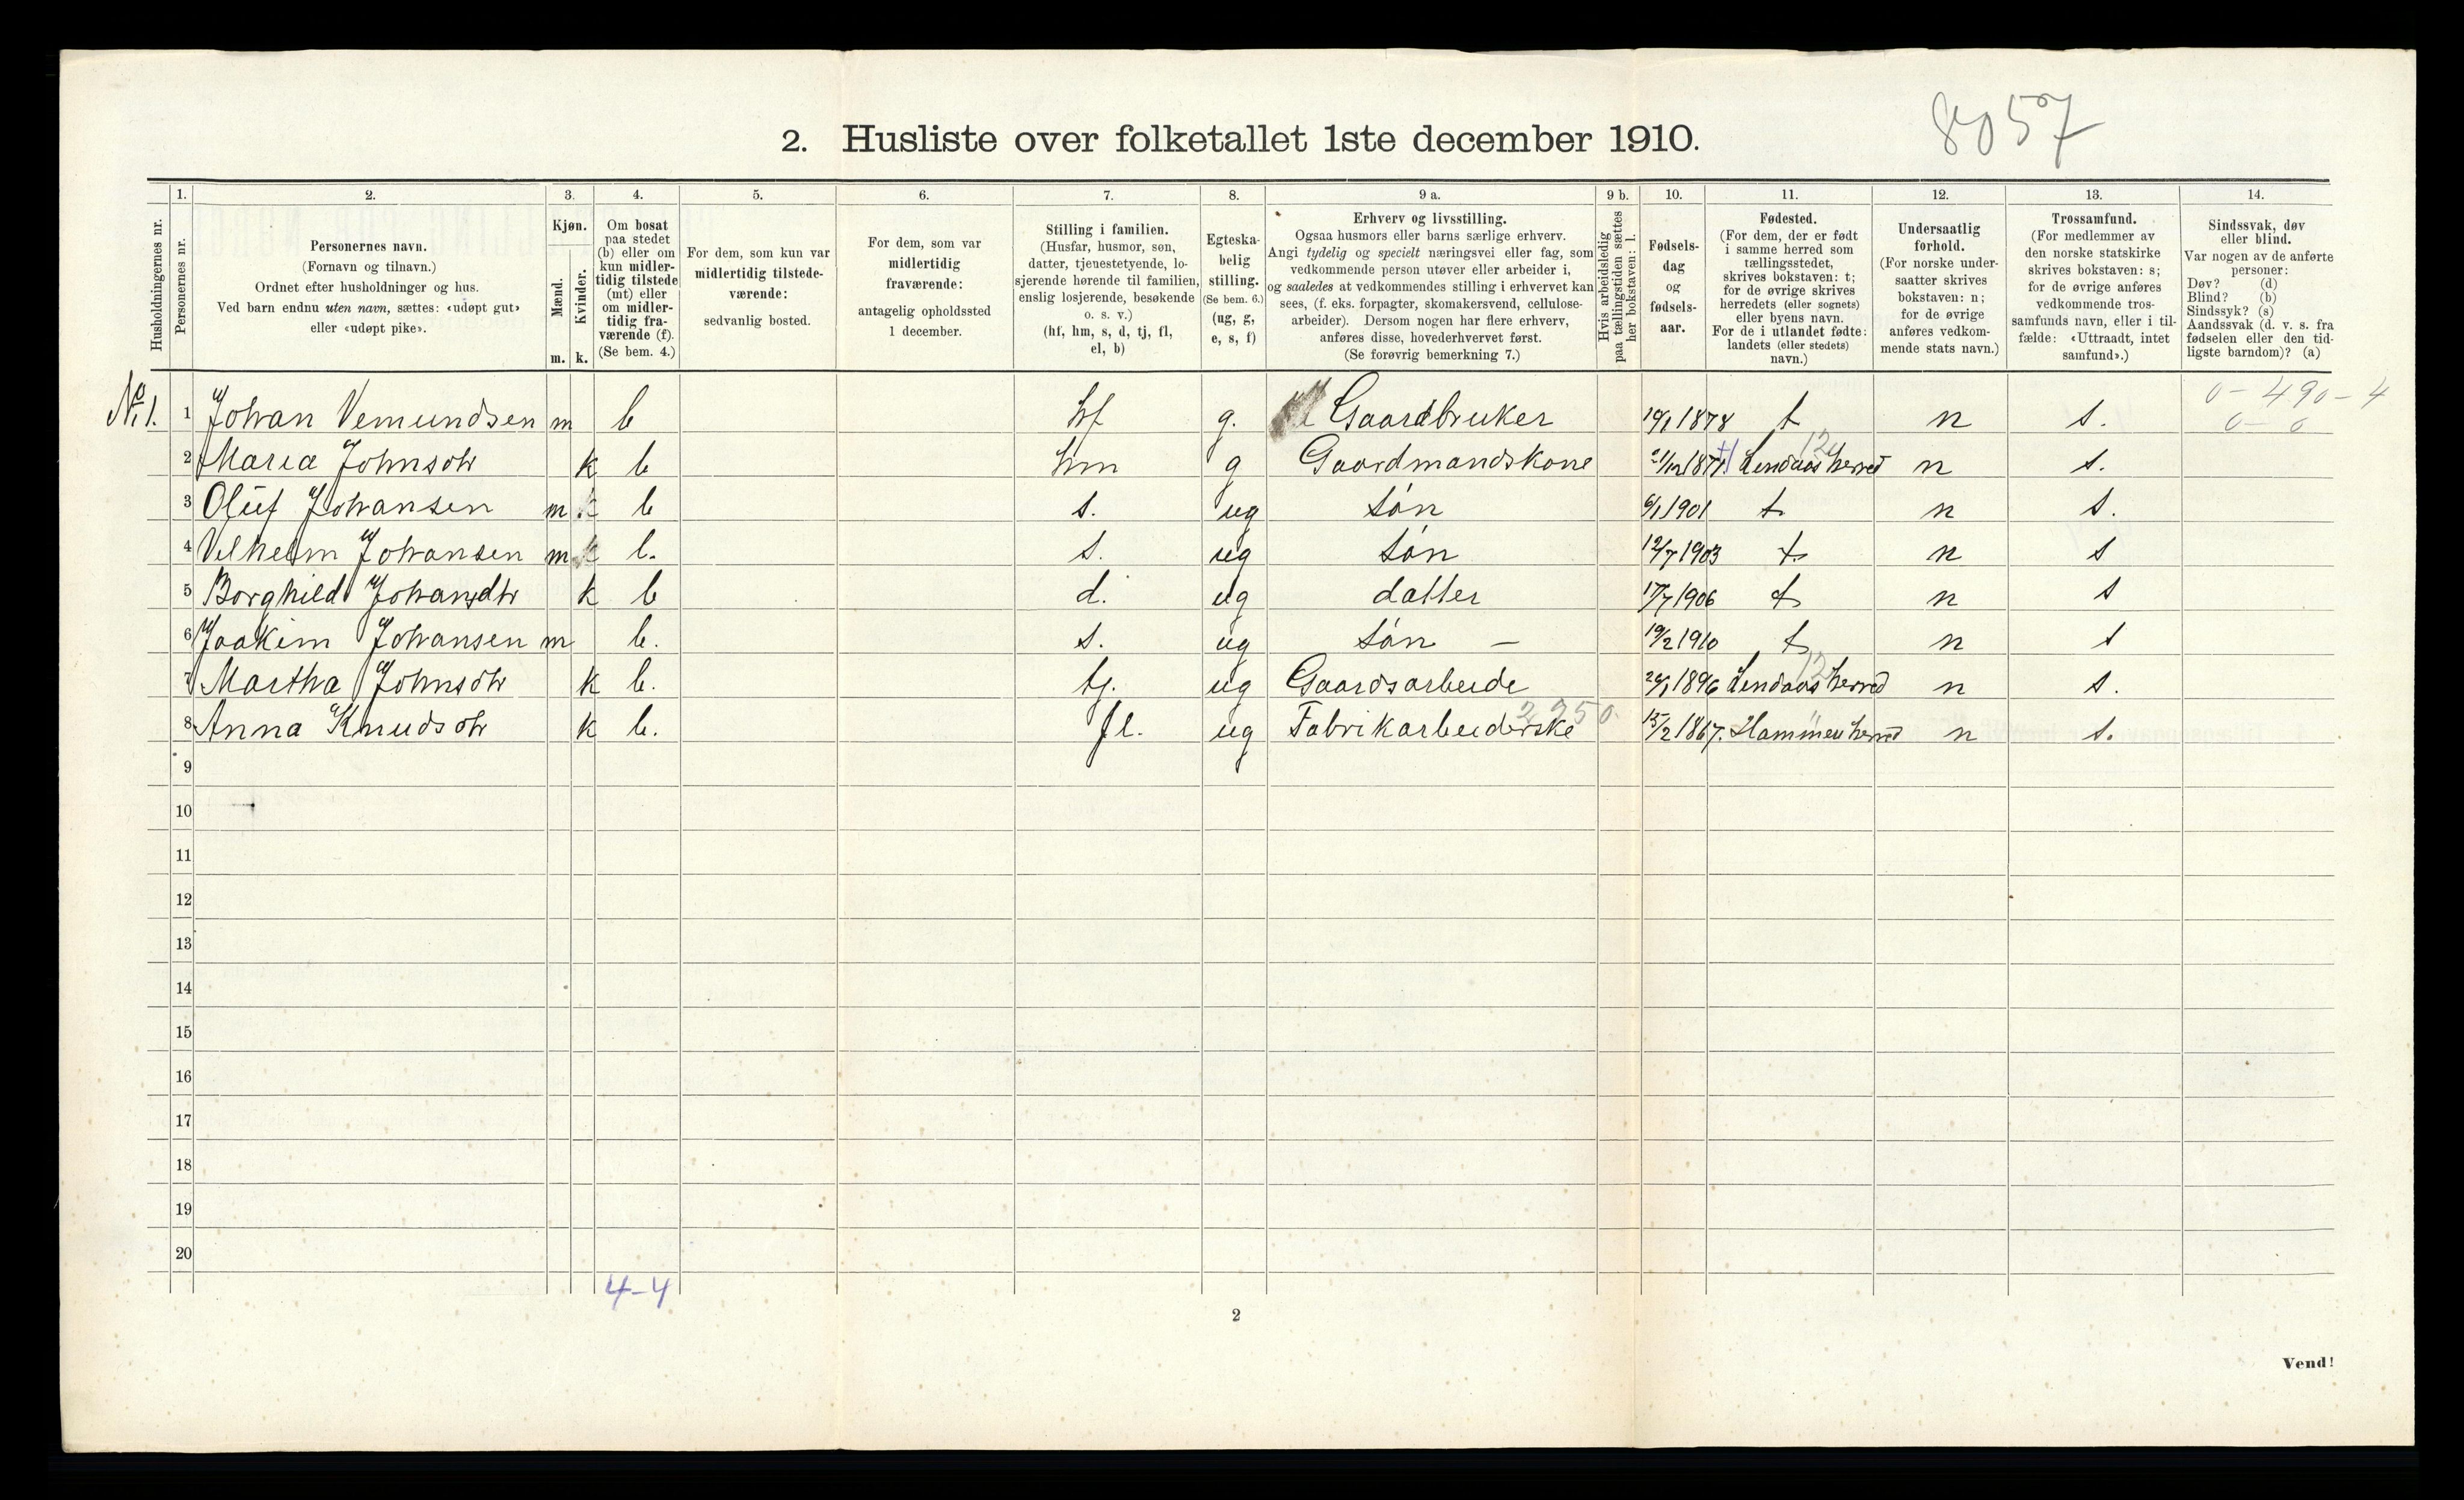 8057
2. Husliste over folketallet 1ste december 1910.
Husholdningernes nr.
1. Personernes nr.
2. Personernes navn. (Fornavn og tilnavn.) Ordnet efter husholdninger og hus. Ved barn endnu uten navn, sættes: «udøpt gut» eller «udøpt pike».
3. Kjøn. Mænd. m. Kvinder. k.
4. Om bosat paa stedet (b) eller om kun midlertidig tilstede (mt) eller om midlertidig fraværende (f). (Se bem. 4.)
5. For dem, som kun var midlertidig tilstedeværende: sedvanlig bosted.
6. For dem, som var midlertidig fraværende: antagelig opholdssted 1 december.
7. Stilling i familien. (Husfar, husmor, søn, datter, tjenestetyende, losjerende hørende til familien, enslig losjerende, besøkende o. s. v.) (hf, hm, s, d, tj, fl, el, b)
8. Egteskabelig stilling. (Se bem. 6.) (ug, g, e, s, f)
9 a. Erhverv og livsstilling. Ogsaa husmors eller barns særlige erhverv. Angi tydelig og specielt næringsvei eller fag, som vedkommende person utøver eller arbeider i, og saaledes at vedkommendes stilling i erhvervet kan sees, (f. eks. forpagter, skomakersvend, cellulosearbeider). Dersom nogen har flere erhverv, anføres disse, hovederhvervet først. (Se forøvrig bemerkning 7.)
9 b. Hvis arbeidsledig paa tællingstiden sættes her bokstaven: l.
10. Fødselsdag og fødselsaar.
11. Fødested. (For dem, der er født i samme herred som tællingsstedet, skrives bokstaven: t; for de øvrige skrives herredets (eller sognets) eller byens navn. For de i utlandet fødte: landets (eller stedets) navn.)
12. Undersaatlig forhold. (For norske undersaatter skrives bokstaven: n; for de øvrige anføres vedkommende stats navn.)
13. Trossamfund. (For medlemmer av den norske statskirke skrives bokstaven: s; for de øvrige anføres vedkommende trossamfunds navn, eller i tilfælde: «Uttraadt, intet samfund».)
14. Sindssvak, døv eller blind. Var nogen av de anførte personer: Døv? (d) Blind? (b) Sindssyk? (s) Aandssvak (d. v. s. fra fødselen eller den tidligste barndom)? (a)
0 - 490 - 4
0 - 0
No 1. 1 Johan Vemundsen m b hf g. Gaardbruker 19/1 1878 t n s.
2 Maria Johnsdtr k b hm g Gaardmandskone 21/12 1871 Lindaas herred n s.
3 Oluf Johansen m b s. ug søn 6/1 1901 t n s.
4 Vilhelm Johansen m b. s. ug søn 12/7 1903 t n s
5 Borghild Johansdtr k b d. ug datter 17/7 1906 t n s
6 Joakim Johansen m b. s. ug søn - 19/2 1910 t n s
7 Martha Johnsdtr k b. tj. ug Gaardsarbeide 1896 Lindaas herred n s.
8 Anna Knudsdtr k b. fl. ug Fabrikarbeiderske 15/2 1867. herred n s.
9
10
11
12
13
14
15
16
17
18
19
20
4-4
2
Vend!